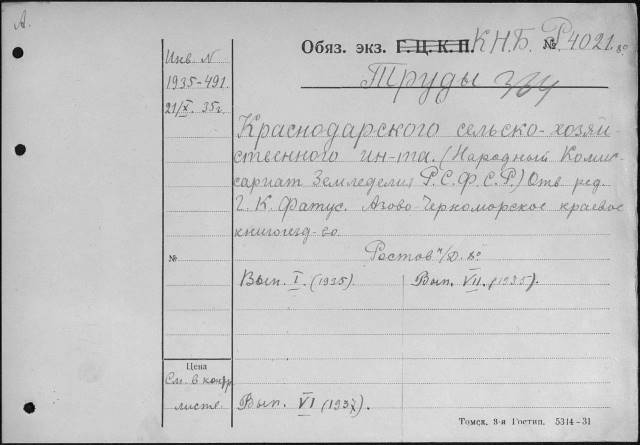 А.
Обяз. экз. Г.Ц.К.П. К.Н.Б. № Р4021 8°
Инв. N
1935-491
21/X. 35г.
Труды
Краснодарского сельско-хозяй-
ственного ин-та. (Народный Комис-
сариат Земледелия Р.С.Ф.С.Р.) Отв. ред.
Г. К. Фатус. Азово-Черноморское краевое
книгоизд-во.
Ростов н/Д. 8°
№
Вып. I. (1935).
Вып. VII. (1935).
Цена
См. в контр.
листе.
Вып. VI (1937).
Томск. 3-я Гостип. 5314-31